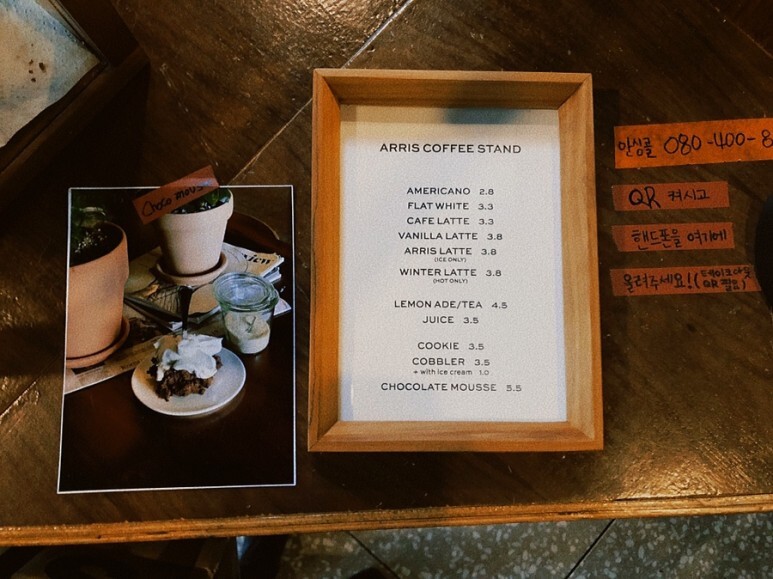 ARRIS COFFEE STAND
AMERICANO 2.8
FLAT WHITE 3.3
CAFE LATTE 3.3
VANILLA LATTE 3.8
ARRIS LATTE 3.8
(ICE ONLY)
WINTER LATTE 3.8
(HOT ONLY)
LEMON ADE/TEA 4.5
JUICE 3.5
COOKIE 3.5
COBBLER 3.5
+ with ice cream 1.0
CHOCOLATE MOUSSE 5.5
Choco mous
안심콜 080-400-8
QR 켜시고
핸드폰을 여기에
올려주세요! (테이크아웃
QR필요)